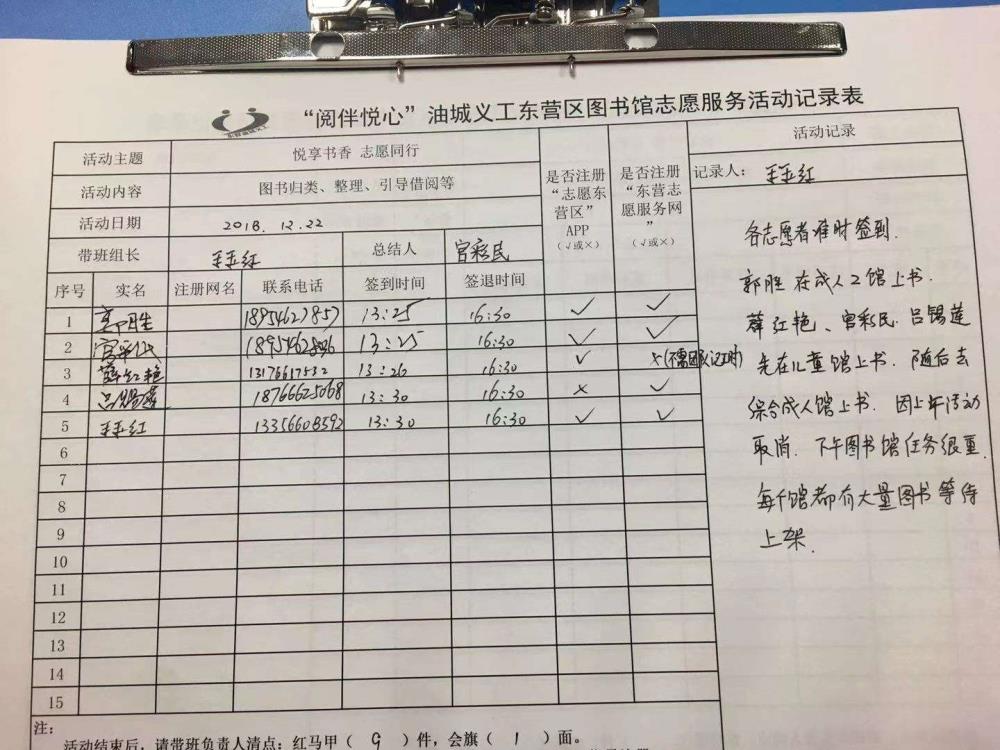 “阅伴悦心”油城义工东营区图书馆志愿服务活动记录表
活动主题 悦享书香 志愿同行
活动内容 图书归类、整理、引导借阅等
活动日期 2018.12.22
带班组长 王玉红 总结人 宫彩民
是否注册“志愿东营区”APP（√或×）
是否注册“东营志愿服务网”（√或×）
序号 实名 注册网名 联系电话 签到时间 签退时间
1 郭胜 18954627857 13:25 16:30 √ √
2 宫彩民 13:25 16:30 √ √
3 薛红艳 13176617532 13:26 16:30 √ ×
4 吕锡莲 18766625068 13:30 16:30 × √
5 王玉红 13356608392 13:30 16:30 √ √
6
7
8
9
10
11
12
13
14
15
活动记录
记录人：王玉红
各志愿者准时签到.
郭胜在成人2馆上书.
薛红艳、宫彩民.吕锡莲
先在儿童馆上书.随后去
综合成人馆上书.因上午活动
取消.下午图书馆任务很重.
每个馆都有大量图书等待
上架.
注：
活动结束后，请带班负责人清点：红马甲（ 9 ）件，会旗（ 1 ）面。